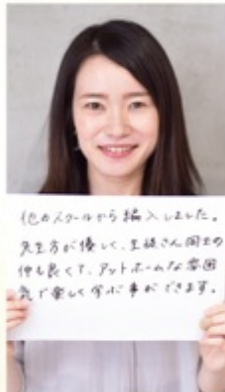 他のスクールから編入しました。
先生方が優しく、生徒さん同士の
仲も良くて、アットホームな雰囲
気で楽しく学ぶ事ができます。